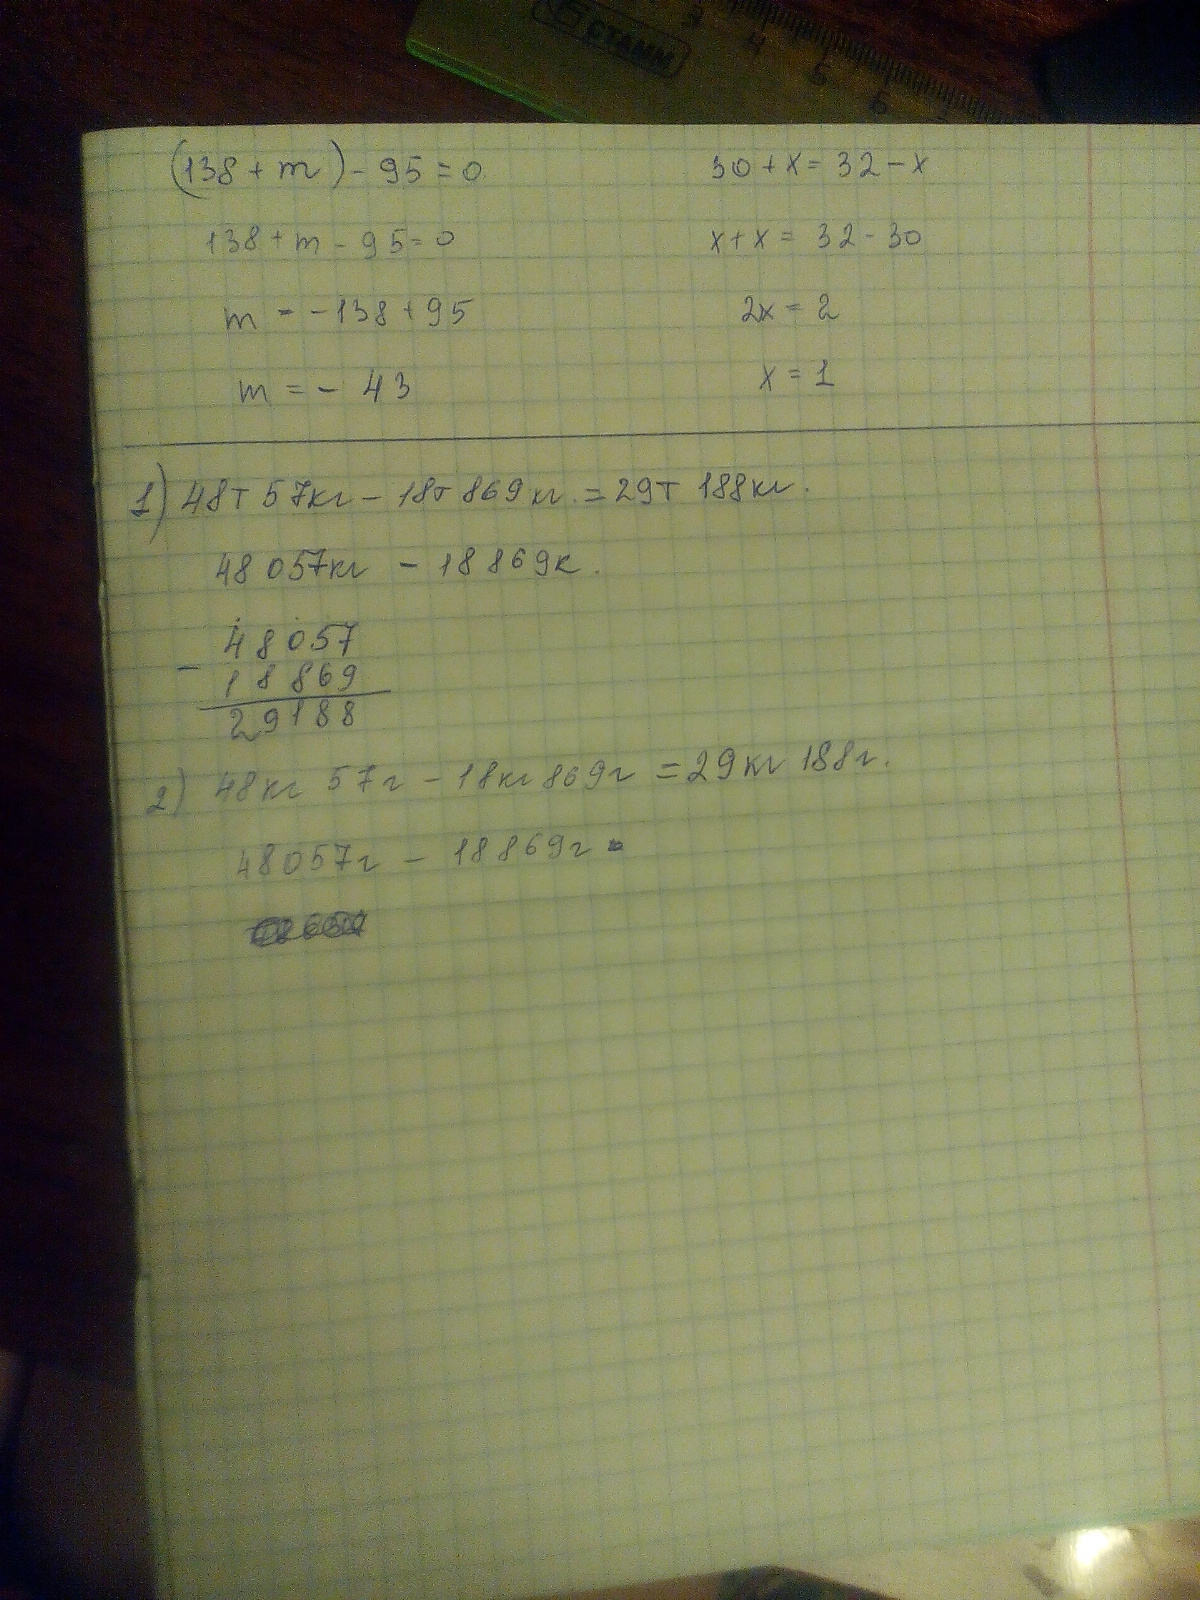 СТАММ
3 4 5 6
(138 + m) - 95 = 0
138 + m - 95 = 0
m = -138 + 95
m = - 43
30 + x = 32 - x
x + x = 32 - 30
2x = 2
x = 1
1) 48т 57кг - 18т 869кг. = 29т 188кг.
48 057кг - 18 869к.
48057
-
18869
29188
2) 48кг 57г - 18кг 869г = 29кг 188г.
48057г - 18869г